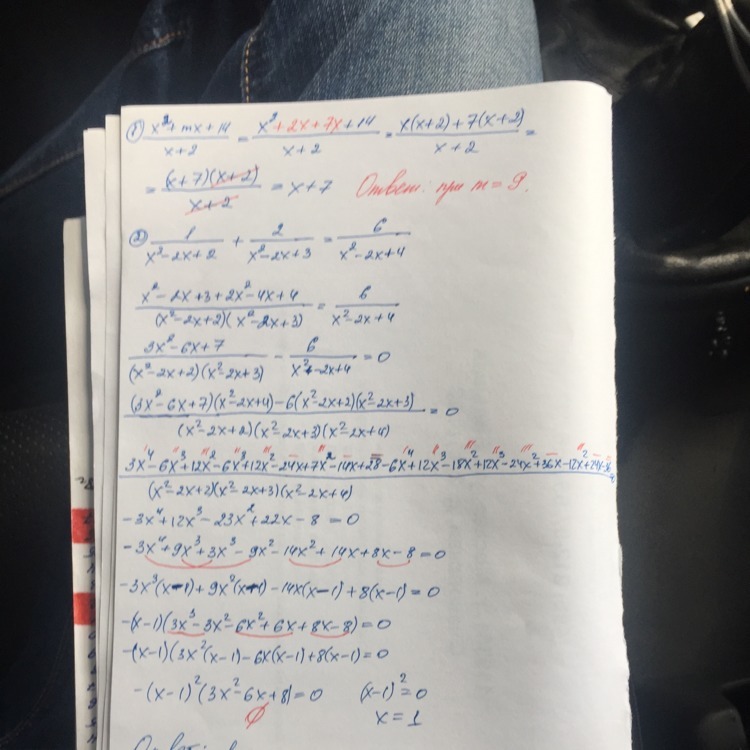 1) (x²+mx+14)/(x+2) = (x²+2x+7x+14)/(x+2) = (x(x+2)+7(x+2))/(x+2) =
= ((x+7)(x+2))/(x+2) = x+7 Ответ: при m=9.
2) 1/(x²-2x+2) + 2/(x²-2x+3) = 6/(x²-2x+4)
(x²-2x+3+2x²-4x+4)/((x²-2x+2)(x²-2x+3)) = 6/(x²-2x+4)
(3x²-6x+7)/((x²-2x+2)(x²-2x+3)) - 6/(x²-2x+4) = 0
((3x²-6x+7)(x²-2x+4)-6(x²-2x+2)(x²-2x+3))/((x²-2x+2)(x²-2x+3)(x²-2x+4)) = 0
(3x⁴-6x³+12x²-6x³+12x²-24x+7x²-14x+28-6x⁴+12x³-18x²+12x³-24x²+36x-12x²+24x-36)/((x²-2x+2)(x²-2x+3)(x²-2x+4))
-3x⁴+12x³-23x²+22x-8=0
-3x⁴+9x³+3x³-9x²-14x²+14x+8x-8=0
-3x³(x-1)+9x²(x-1)-14x(x-1)+8(x-1)=0
-(x-1)(3x³-3x²-6x²+6x+8x-8)=0
-(x-1)(3x²(x-1)-6x(x-1)+8(x-1)=0
-(x-1)²(3x²-6x+8)=0 (x-1)²=0
∅ x=1